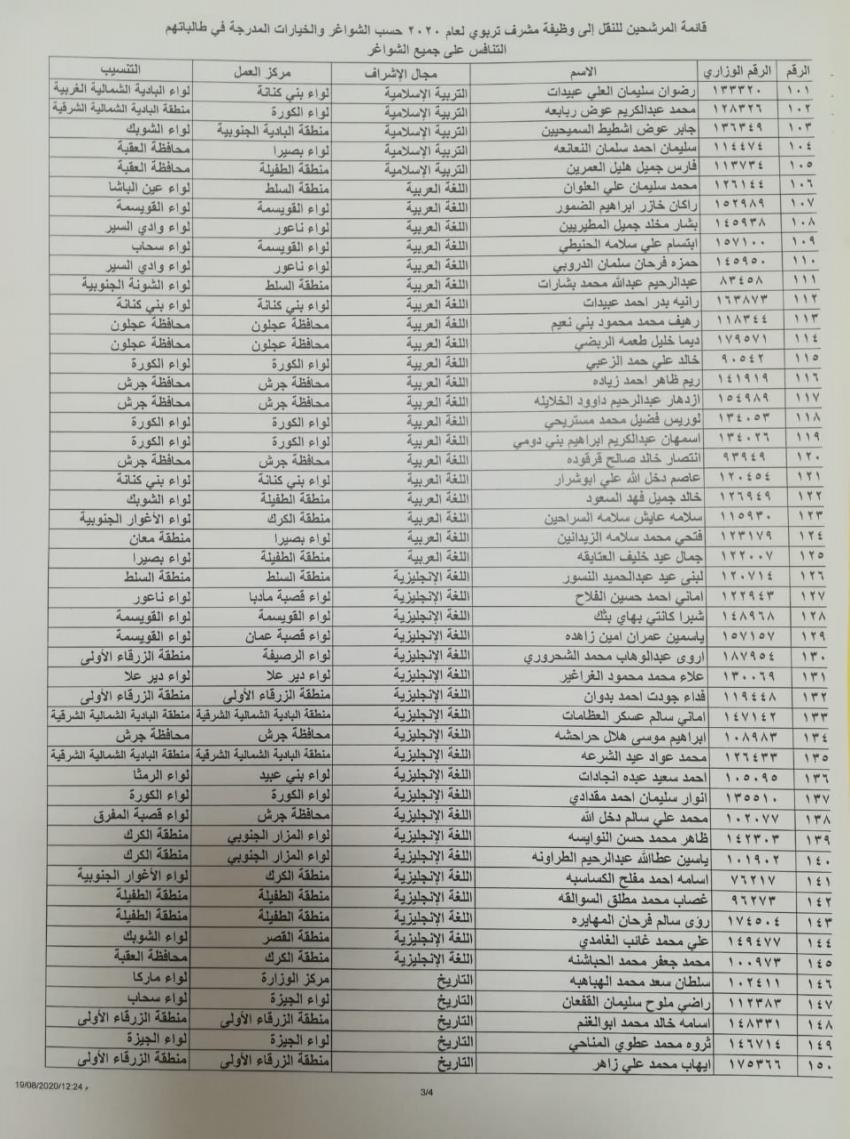 قائمة المرشحين للنقل إلى وظيفة مشرف تربوي لعام ٢٠٢٠ حسب الشواغر والخيارات المدرجة في طالباتهم
التنافس على جميع الشواغر
الرقم الرقم الوزاري الاسم مجال الإشراف مركز العمل التنسيب
١٠١ ١٣٣٣٢٠ رضوان سليمان العلي عبيدات التربية الإسلامية لواء بني كنانة لواء البادية الشمالية الغربية
١٠٢ ١٢٨٣٢٦ محمد عبدالكريم عوض ربابعه التربية الإسلامية لواء الكورة منطقة البادية الشمالية الشرقية
١٠٣ ١٣٦٣٤٩ جابر عوض اشطيط السميحيين التربية الإسلامية منطقة البادية الجنوبية لواء الشوبك
١٠٤ ١١٤٤٧٤ سليمان احمد سلمان النعانعه التربية الإسلامية لواء بصيرا محافظة العقبة
١٠٥ ١١٣٧٣٤ فارس جميل هليل العمرين التربية الإسلامية منطقة الطفيلة محافظة العقبة
١٠٦ ١٢٦١٤٤ محمد سليمان علي العلوان اللغة العربية منطقة السلط لواء عين الباشا
١٠٧ ١٥٢٩٨٩ راكان خازر ابراهيم الضمور اللغة العربية لواء القويسمة لواء القويسمة
١٠٨ ١٤٥٩٣٨ بشار مخلد جميل المطيريين اللغة العربية لواء ناعور لواء وادي السير
١٠٩ ١٥٧١٠٠ ابتسام علي سلامه الحنيطي اللغة العربية لواء القويسمة لواء سحاب
١١٠ ١٤٥٩٥٠ حمزه فرحان سلمان الدروبي اللغة العربية لواء ناعور لواء وادي السير
١١١ ٨٣٤٥٨ عبدالرحيم عبدالله محمد بشارات اللغة العربية منطقة السلط لواء الشونة الجنوبية
١١٢ ١٦٣٨٧٣ رانيه بدر احمد عبيدات اللغة العربية لواء بني كنانة لواء بني كنانة
١١٣ ١١٨٣٤٤ رهيف محمد محمود بني نعيم اللغة العربية محافظة عجلون محافظة عجلون
١١٤ ١٧٩٥٧١ ديما خليل طعمه الربضي اللغة العربية محافظة عجلون محافظة عجلون
١١٥ ٩٠٥٤٢ خالد علي حمد الزعبي اللغة العربية لواء الكورة لواء الكورة
١١٦ ١٤١٩١٩ ريم ظاهر احمد زياده اللغة العربية محافظة جرش محافظة جرش
١١٧ ١٥٤٩٨٩ ازدهار عبدالرحيم داوود الخلايله اللغة العربية محافظة جرش محافظة جرش
١١٨ ١٣٤٠٥٣ لوريس فضيل محمد مستريحي اللغة العربية لواء الكورة لواء الكورة
١١٩ ١٣٤٠٢٦ اسمهان عبدالكريم ابراهيم بني دومي اللغة العربية لواء الكورة لواء الكورة
١٢٠ ٩٣٩٤٩ انتصار خالد صالح قرقوده اللغة العربية محافظة جرش محافظة جرش
١٢١ ١٢٠٤٥٤ عاصم دخل الله علي ابوشرار اللغة العربية لواء بني كنانة لواء بني كنانة
١٢٢ ١٢٦٩٤٩ خالد جميل فهد السعود اللغة العربية منطقة الطفيلة لواء الشوبك
١٢٣ ١١٥٩٣٠ سلامه عايش سلامه السراحين اللغة العربية منطقة الكرك لواء الأغوار الجنوبية
١٢٤ ١٢٣١٧٩ فتحي محمد سلامه الزيدانين اللغة العربية لواء بصيرا منطقة معان
١٢٥ ١٢٢٠٠٧ جمال عيد خليف العتايقه اللغة العربية منطقة الطفيلة لواء بصيرا
١٢٦ ١٢٠٧١٤ لبنى عيد عبدالحميد النسور اللغة الإنجليزية منطقة السلط منطقة السلط
١٢٧ ١٢٢٩٤٣ اماني احمد حسين الفلاح اللغة الإنجليزية لواء قصبة مادبا لواء ناعور
١٢٨ ١٤٨٩٦٨ شبرا كانتي بهاي بثك اللغة الإنجليزية لواء القويسمة لواء القويسمة
١٢٩ ١٥٧١٥٧ ياسمين عمران امين زاهده اللغة الإنجليزية لواء قصبة عمان لواء القويسمة
١٣٠ ١٨٧٩٥٤ اروى عبدالوهاب محمد الشحروري اللغة الإنجليزية لواء الرصيفة منطقة الزرقاء الأولى
١٣١ ١٣٠٠٦٩ علاء محمد محمود الغراغير اللغة الإنجليزية لواء دير علا لواء دير علا
١٣٢ ١١٩٤٤٨ فداء جودت احمد بدوان اللغة الإنجليزية منطقة الزرقاء الأولى منطقة الزرقاء الأولى
١٣٣ ١٤٧١٤٢ اماني سالم عسكر العظامات اللغة الإنجليزية منطقة البادية الشمالية الشرقية منطقة البادية الشمالية الشرقية
١٣٤ ١٠٨٩٨٣ ابراهيم موسى هلال حراحشه اللغة الإنجليزية محافظة جرش محافظة جرش
١٣٥ ١٢٦٤٣٣ محمد عواد عيد الشرعه اللغة الإنجليزية منطقة البادية الشمالية الشرقية منطقة البادية الشمالية الشرقية
١٣٦ ١٠٥٠٩٥ احمد سعيد عبده انجادات اللغة الإنجليزية لواء بني عبيد لواء الرمثا
١٣٧ ١٣٥٥١٠ انوار سليمان احمد مقدادي اللغة الإنجليزية لواء الكورة لواء الكورة
١٣٨ ١٠٢٠٧٧ محمد علي سالم دخل الله اللغة الإنجليزية محافظة جرش لواء قصبة المفرق
١٣٩ ١٤٢٣٠٣ ظاهر محمد حسن النوايسه اللغة الإنجليزية لواء المزار الجنوبي منطقة الكرك
١٤٠ ١٠١٩٠٢ ياسين عطاالله عبدالرحيم الطراونه اللغة الإنجليزية لواء المزار الجنوبي منطقة الكرك
١٤١ ٧٦٢١٧ اسامه احمد مفلح الكساسبه اللغة الإنجليزية منطقة الكرك لواء الأغوار الجنوبية
١٤٢ ٩٦٢٧٣ غصاب محمد مطلق السوالقه اللغة الإنجليزية منطقة الطفيلة منطقة الطفيلة
١٤٣ ١٧٤٥٠٤ رؤى سالم فرحان المهايره اللغة الإنجليزية منطقة الطفيلة منطقة الطفيلة
١٤٤ ١٤٩٤٧٧ علي محمد غانب الغامدي اللغة الإنجليزية منطقة القصر لواء الشوبك
١٤٥ ١٠٠٩٧٣ محمد جعفر محمد الحباشنه اللغة الإنجليزية منطقة الكرك محافظة العقبة
١٤٦ ١٠٢٤١١ سلطان سعد محمد الهباهبه التاريخ مركز الوزارة لواء ماركا
١٤٧ ١١٢٣٨٣ راضي ملوح سليمان القفعان التاريخ لواء الجيزة لواء سحاب
١٤٨ ١٤٨٣٣١ اسامه خالد محمد ابوالغنم التاريخ منطقة الزرقاء الأولى منطقة الزرقاء الأولى
١٤٩ ١٤٦٧١٤ ثروه محمد عطوي المناحي التاريخ لواء الجيزة لواء الجيزة
١٥٠ ١٧٥٣٦٦ ايهاب محمد علي زاهر التاريخ منطقة الزرقاء الأولى منطقة الزرقاء الأولى
19/08/2020/12:24 م
3/4